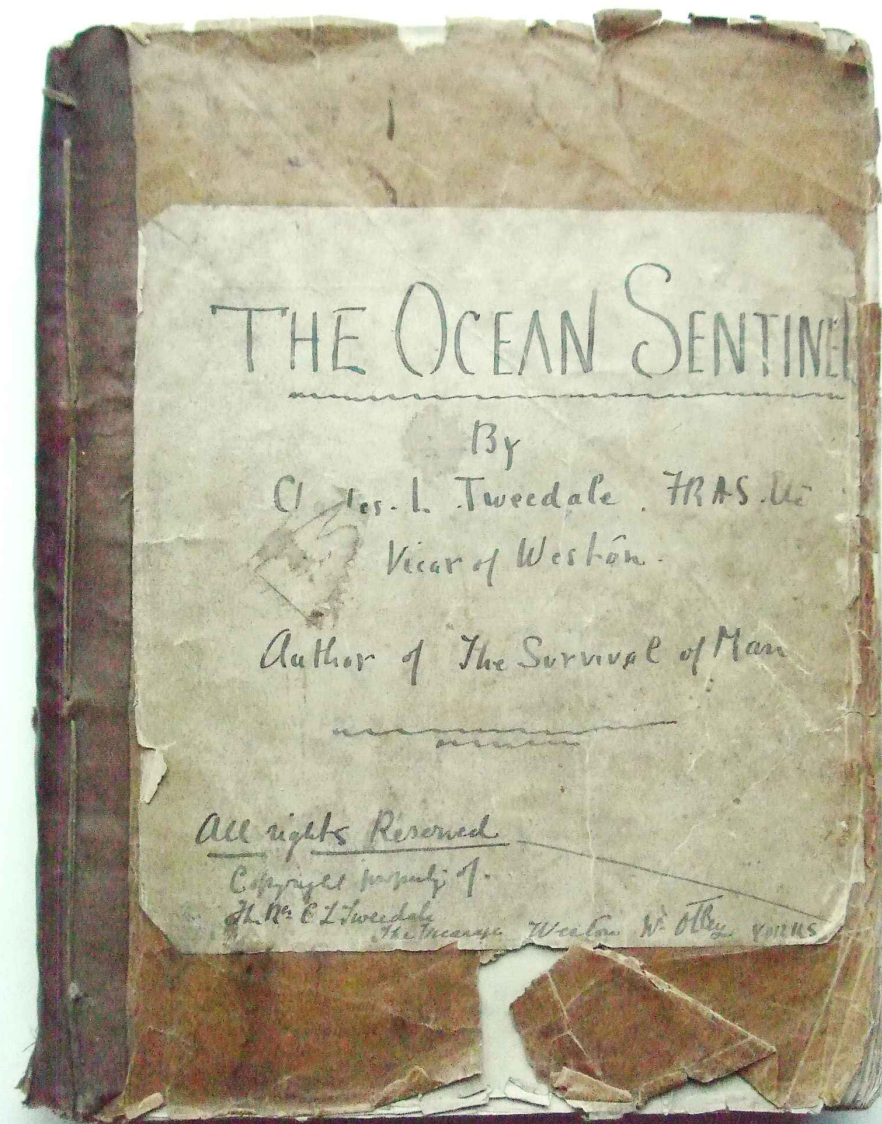 THE OCEAN SENTINEL
By
L. Tweedale. FRAS.
Vicar of Weston.
Author of The Survival of Man
All rights Reserved
Copyright property of.
C L Tweedale
Weston Otley YORKS